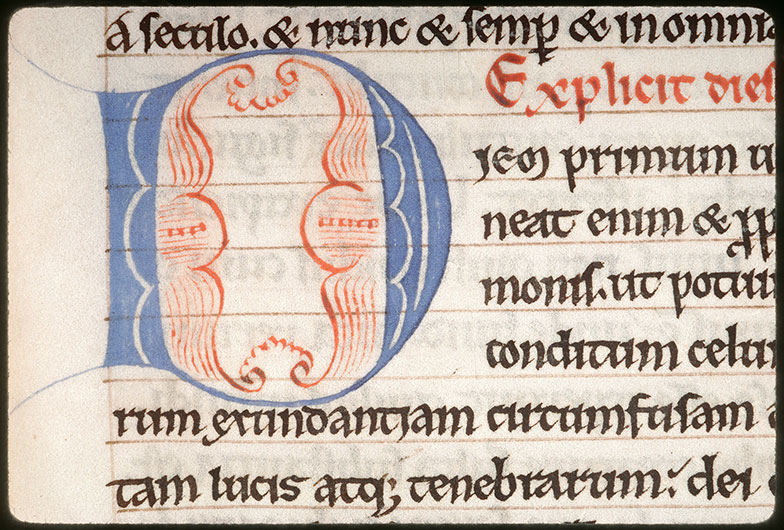 a seculo. & nunc & semꝑ & in omnia
Explicit dies
D
iem primum u
neat enim & ꝓp
monis. ut potiu
conditum celu
rum exundantiam circumfusam
tam lucis atq; tenebrarum: dei